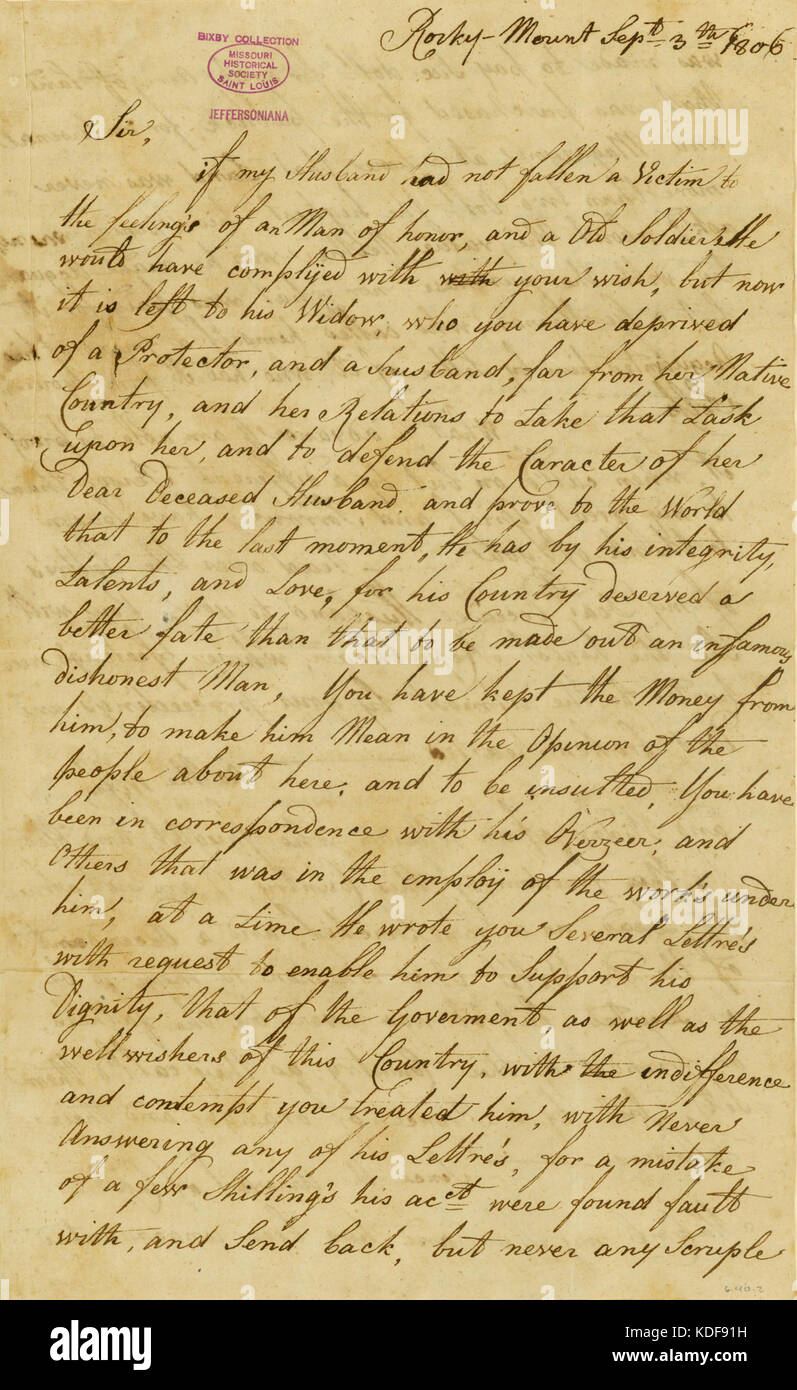 BIXBY COLLECTION
MISSOURI
HISTORICAL
SOCIETY
SAINT LOUIS
JEFFERSONIANA
Rocky-Mount Sept. 3th 1806
Sir,
if my Husband had not fallen a Victim to
the feeling's of an Man of honor, and a Old Soldier, He
would have complijed with with your wish, but now
it is left to his Widow, who you have deprived
of a Protector, and a husband, far from her Native
Country, and her Relations to take that task
upon her, and to defend the Caracter of her
Dear Deceased Husband. and prove to the World
that to the last moment, He has by his integrity,
talents, and Love, for his Country deserved a
better fate than that to be made out an infamous
dishonest Man, You have kept the Money from
him, to make him Mean in the Opinion of the
people about here, and to be insulted, You have
been in correspondence with his Overzeer, and
Others that was in the employ of the work's under
him, at a time He wrote you Several Lettre's
with request to enable him to Support his
Dignity, that of the Goverment, as well as the
wellwishers of this Country, with the indifference
and contempt you treated him, with never
Answering any of his Lettre's, for a mistake
of a few Shilling's his acct were found fault
with, and Send back, but never any Scruple
6.46.2
alamy
alamy stock photo
KDF91H
www.alamy.com